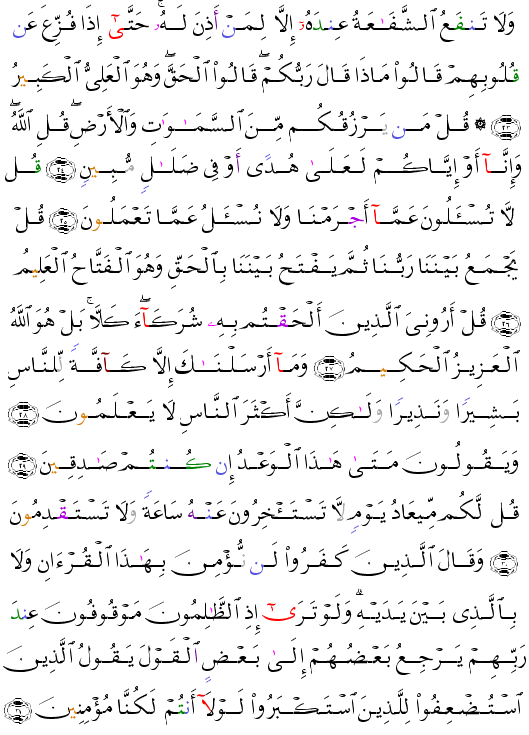 وَلَا تَنفَعُ ٱلشَّفَـٰعَةُ عِندَهُۥٓ إِلَّا لِمَنْ أَذِنَ لَهُۥ ۚ حَتَّىٰٓ إِذَا فُزِّعَ عَن
قُلُوبِهِمْ قَالُوا۟ مَاذَا قَالَ رَبُّكُمْ ۖ قَالُوا۟ ٱلْحَقَّ ۖ وَهُوَ ٱلْعَلِىُّ ٱلْكَبِيرُ
﴿٢٣﴾ ۞ قُلْ مَن يَرْزُقُكُم مِّنَ ٱلسَّمَـٰوَٰتِ وَٱلْأَرْضِ ۖ قُلِ ٱللَّهُ ۖ
وَإِنَّآ أَوْ إِيَّاكُمْ لَعَلَىٰ هُدًى أَوْ فِى ضَلَـٰلٍ مُّبِينٍ ﴿٢٤﴾ قُل
لَّا تُسْـَٔلُونَ عَمَّآ أَجْرَمْنَا وَلَا نُسْـَٔلُ عَمَّا تَعْمَلُونَ ﴿٢٥﴾ قُلْ
يَجْمَعُ بَيْنَنَا رَبُّنَا ثُمَّ يَفْتَحُ بَيْنَنَا بِٱلْحَقِّ وَهُوَ ٱلْفَتَّاحُ ٱلْعَلِيمُ
﴿٢٦﴾ قُلْ أَرُونِىَ ٱلَّذِينَ أَلْحَقْتُم بِهِۦ شُرَكَآءَ ۖ كَلَّا ۚ بَلْ هُوَ ٱللَّهُ
ٱلْعَزِيزُ ٱلْحَكِيمُ ﴿٢٧﴾ وَمَآ أَرْسَلْنَـٰكَ إِلَّا كَآفَّةً لِّلنَّاسِ
بَشِيرًا وَنَذِيرًا وَلَـٰكِنَّ أَكْثَرَ ٱلنَّاسِ لَا يَعْلَمُونَ ﴿٢٨﴾
وَيَقُولُونَ مَتَىٰ هَـٰذَا ٱلْوَعْدُ إِن كُنتُمْ صَـٰدِقِينَ ﴿٢٩﴾
قُل لَّكُم مِّيعَادُ يَوْمٍ لَّا تَسْتَـْٔخِرُونَ عَنْهُ سَاعَةً وَلَا تَسْتَقْدِمُونَ
﴿٣٠﴾ وَقَالَ ٱلَّذِينَ كَفَرُوا۟ لَن نُّؤْمِنَ بِهَـٰذَا ٱلْقُرْءَانِ وَلَا
بِٱلَّذِى بَيْنَ يَدَيْهِ ۗ وَلَوْ تَرَىٰٓ إِذِ ٱلظَّـٰلِمُونَ مَوْقُوفُونَ عِندَ
رَبِّهِمْ يَرْجِعُ بَعْضُهُمْ إِلَىٰ بَعْضٍ ٱلْقَوْلَ يَقُولُ ٱلَّذِينَ
ٱسْتُضْعِفُوا۟ لِلَّذِينَ ٱسْتَكْبَرُوا۟ لَوْلَآ أَنتُمْ لَكُنَّا مُؤْمِنِينَ ﴿٣١﴾